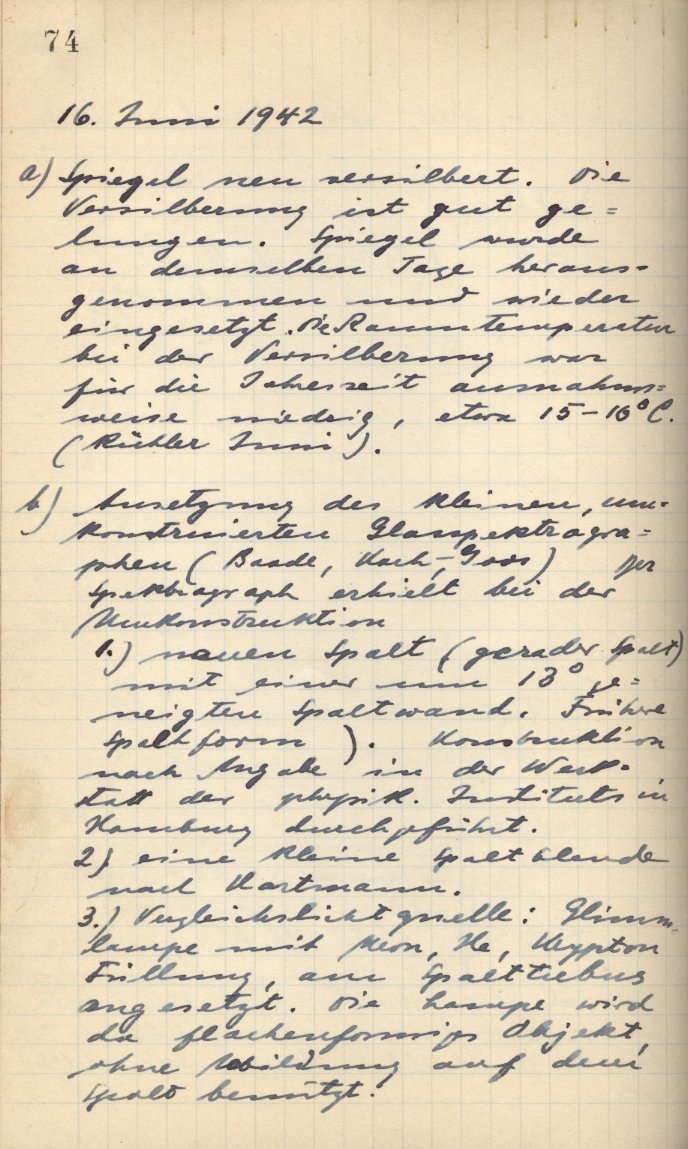 74
16. Juni 1942
a) Spiegel neu versilbert. Die
Versilberung ist gut ge=
lungen. Spiegel wurde
an demselben Tage heraus-
genommen und wieder
eingesetzt. Die Raumtemperatur
bei der Versilberung war
für die Jahreszeit ausnahms=
weise niedrig, etwa 15-16° C.
(Kühler Juni).
b) Ansetzung des kleinen, um-
konstruierten Glasspektrogra=
phen (Baade, Koch-Goos) Der
Spektrograph erhielt bei der
Umkonstruktion
1.) neuen Spalt (gerader Spalt)
mit einer um 13° ge=
neigten Spaltwand. Frühere
Spaltform). Konstruktion
nach Angabe in der Werk-
statt des physik. Instituts in
Hamburg durchgeführt.
2) eine kleine Spaltblende
nach Hartmann.
3.) Vergleichslichtquelle: Glimm-
lampe mit Neon, He, Krypton
Füllung, am Spalttubus
angesetzt. Die Lampe wird
da flächenförmiges Objekt,
ohne Abbildung auf dem
Spalt benützt.